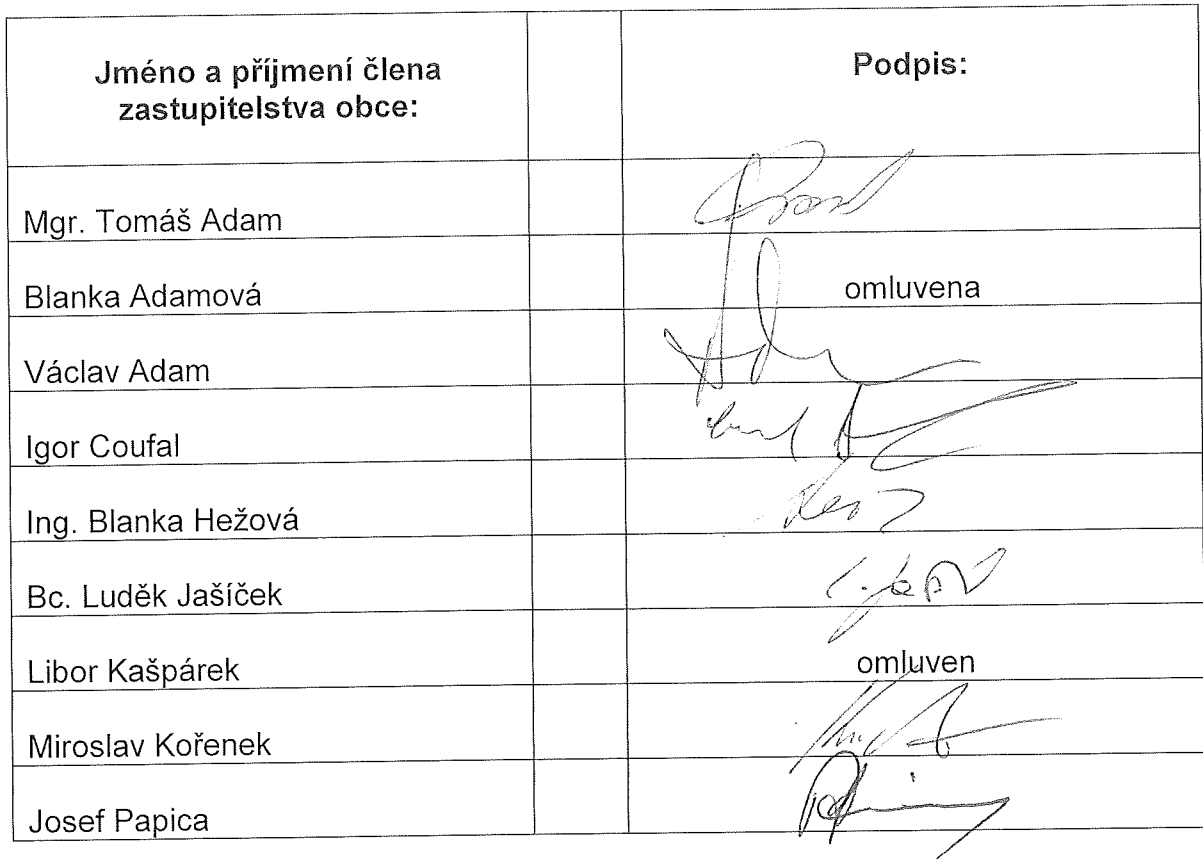 Jméno a příjmení člena
zastupitelstva obce:
Podpis:
Mgr. Tomáš Adam
Blanka Adamová
omluvena
Václav Adam
Igor Coufal
Ing. Blanka Hežová
Bc. Luděk Jašíček
Libor Kašpárek
omluven
Miroslav Kořenek
Josef Papica